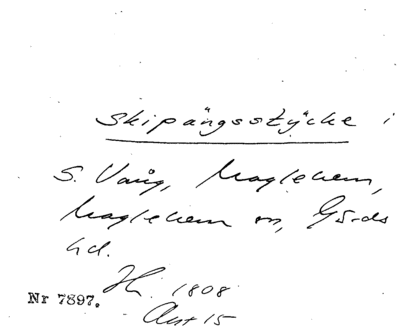 Skipängsstÿcke i
S. Vång, Maglehem,
Maglehem sn, Gärds
hd.
Hi. 1808
Nr 7897.
Akt 15